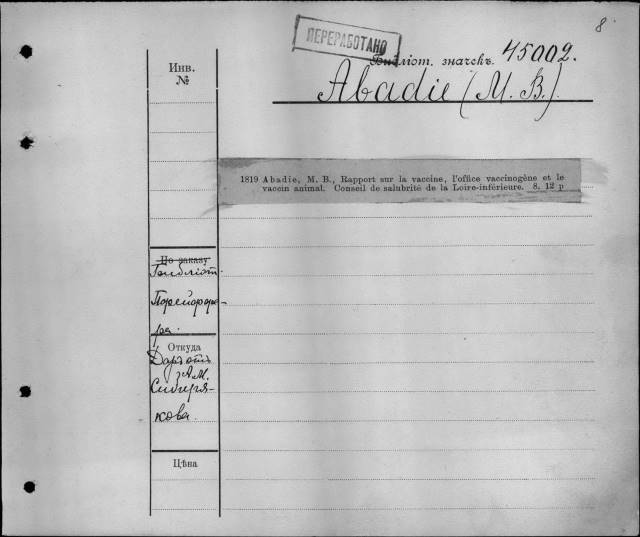 8
ПЕРЕРАБОТАНО
Библіот. значекъ. 45002.
Abadie (M. B.).
Инв.
№
1819 Abadie, M. B., Rapport sur la vaccine, l'office vaccinogène et le
vaccin animal. Conseil de salubrité de la Loire-inférieure. 8. 12 p
По заказу
Библіот.
ра.
Откуда
А.М.
Сибиря-
кова.
Цѣна